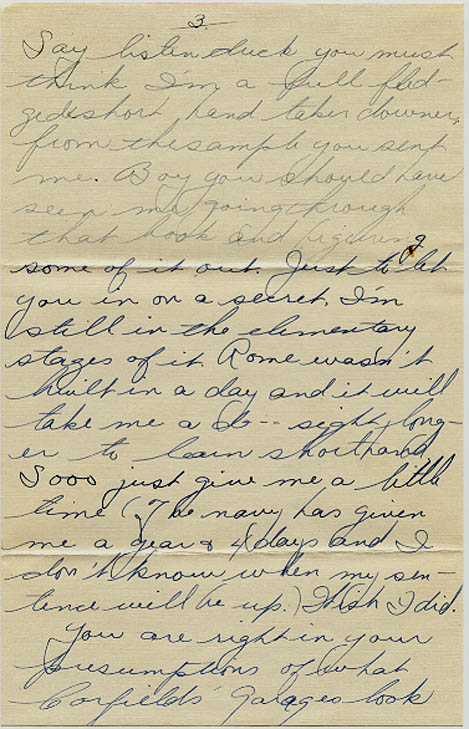 3.
Say listen duck you must
think I'm a full fled-
gideshort hand taker downer,
from the sample you sent
me. Boy you should have
seen me going through
that book and figuring
some of it out. Just to let
you in on a secret, I'm
still in the elementary
stages of it. Rome wasn't
built in a day and it will
take me a d-- sight long-
er to learn shorthand
Sooo just give me a little
time (The navy has given
me a year & 4 days and I
don't know when my sen-
tence will be up.) Wish I did.
You are right in your
presumptions of what
Corfields' Garages look